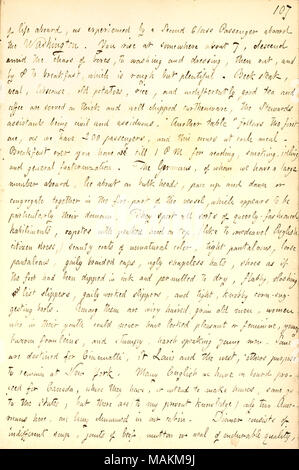 107
of life aboard, as experienced by a Second Class Passenger aboard
the Washington. You rise at somewhere about 7, descend
amid the chaos of boxes, to washing and dressing, then out, and
by 8 to breakfast, which is rough but plentiful. Beef steak,
veal, Cheese, old potatoes, rice, and indifferently good tea and
coffee are served in thick and well chipped earthenware, the Stewards
assistants being civil and assiduous. Another table follows the first
one, as we have 200 passengers, and this occurs at each meal.
Breakfast over you have till 1 P.M. for reading, smoking, idling
and general fraternization. The Germans, of whom we have a large
number aboard, lie about on bulk heads, pace up and down or
congregate together in the fore part of the vessel, which appears to be
particularly their domain. They sport all sorts of queerly-fashioned
habiliments, capotes with peaked hood on top, like to mediæval English
citizen dress; scanty coats of unnatural color, tight pantaloons, loose
pantaloons, gaily banded caps, ugly shapeless hats, shoes as if
the foot had been dipped in ink and permitted to dry, flabby, sloshing
list slippers, gaily worked slippers, and tight, knobby corn-sug-
gesting boots. Among them are very hairied old men, women
who in their youth could never have looked pleasant or feminine, young
and clumsy, harsh speaking young men. Some
are destined for Cincinnatti, St Louis and the west, others purpose
to remain at New York. Many English we have on board pro-
posed for Canada, where they have, or intend to make homes, some go
to the States, but there are to my present knowledge only two Am-
ericans here, on being steward in our cabin. Dinner consists of
indifferent soup, joints of beef mutton or veal of endurable quality,
alamy
Image ID: MAKM9J
www.alamy.com